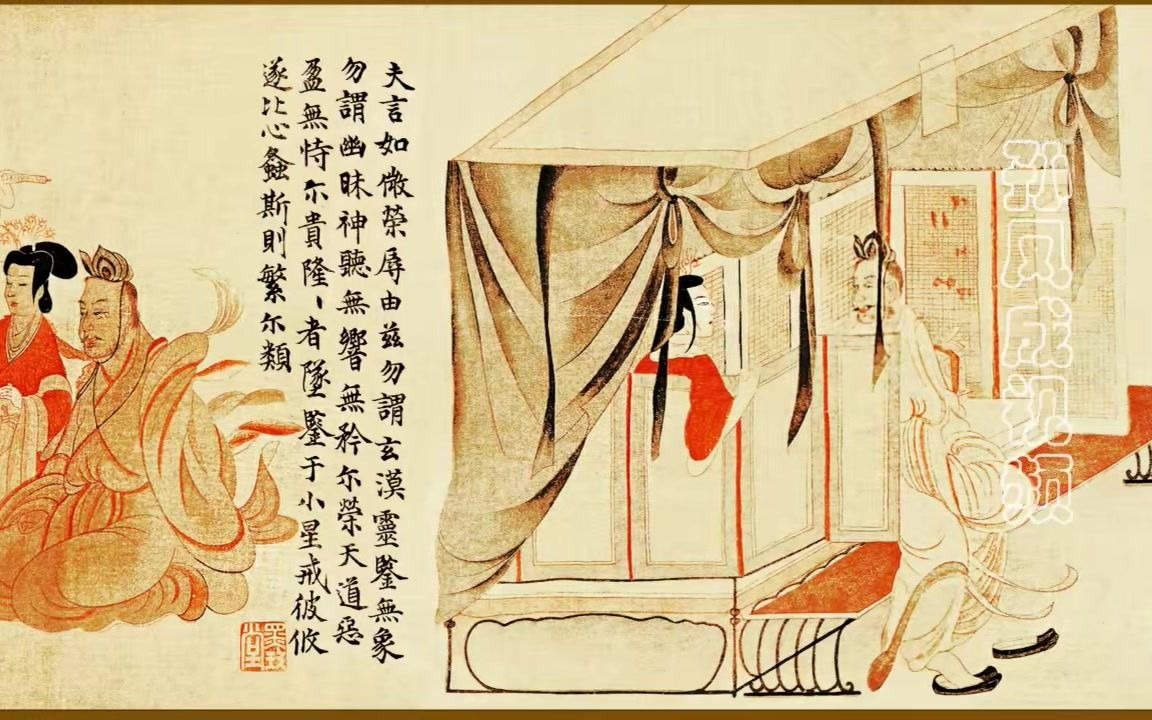 夫言如微榮辱由茲勿謂玄漠靈鑒無象
勿謂幽昧神聽無響無矜尒榮天道惡
盈無恃尒貴隆丶者墜鑒于小星戒彼攸
遂比心螽斯則繁尒類
风成视频